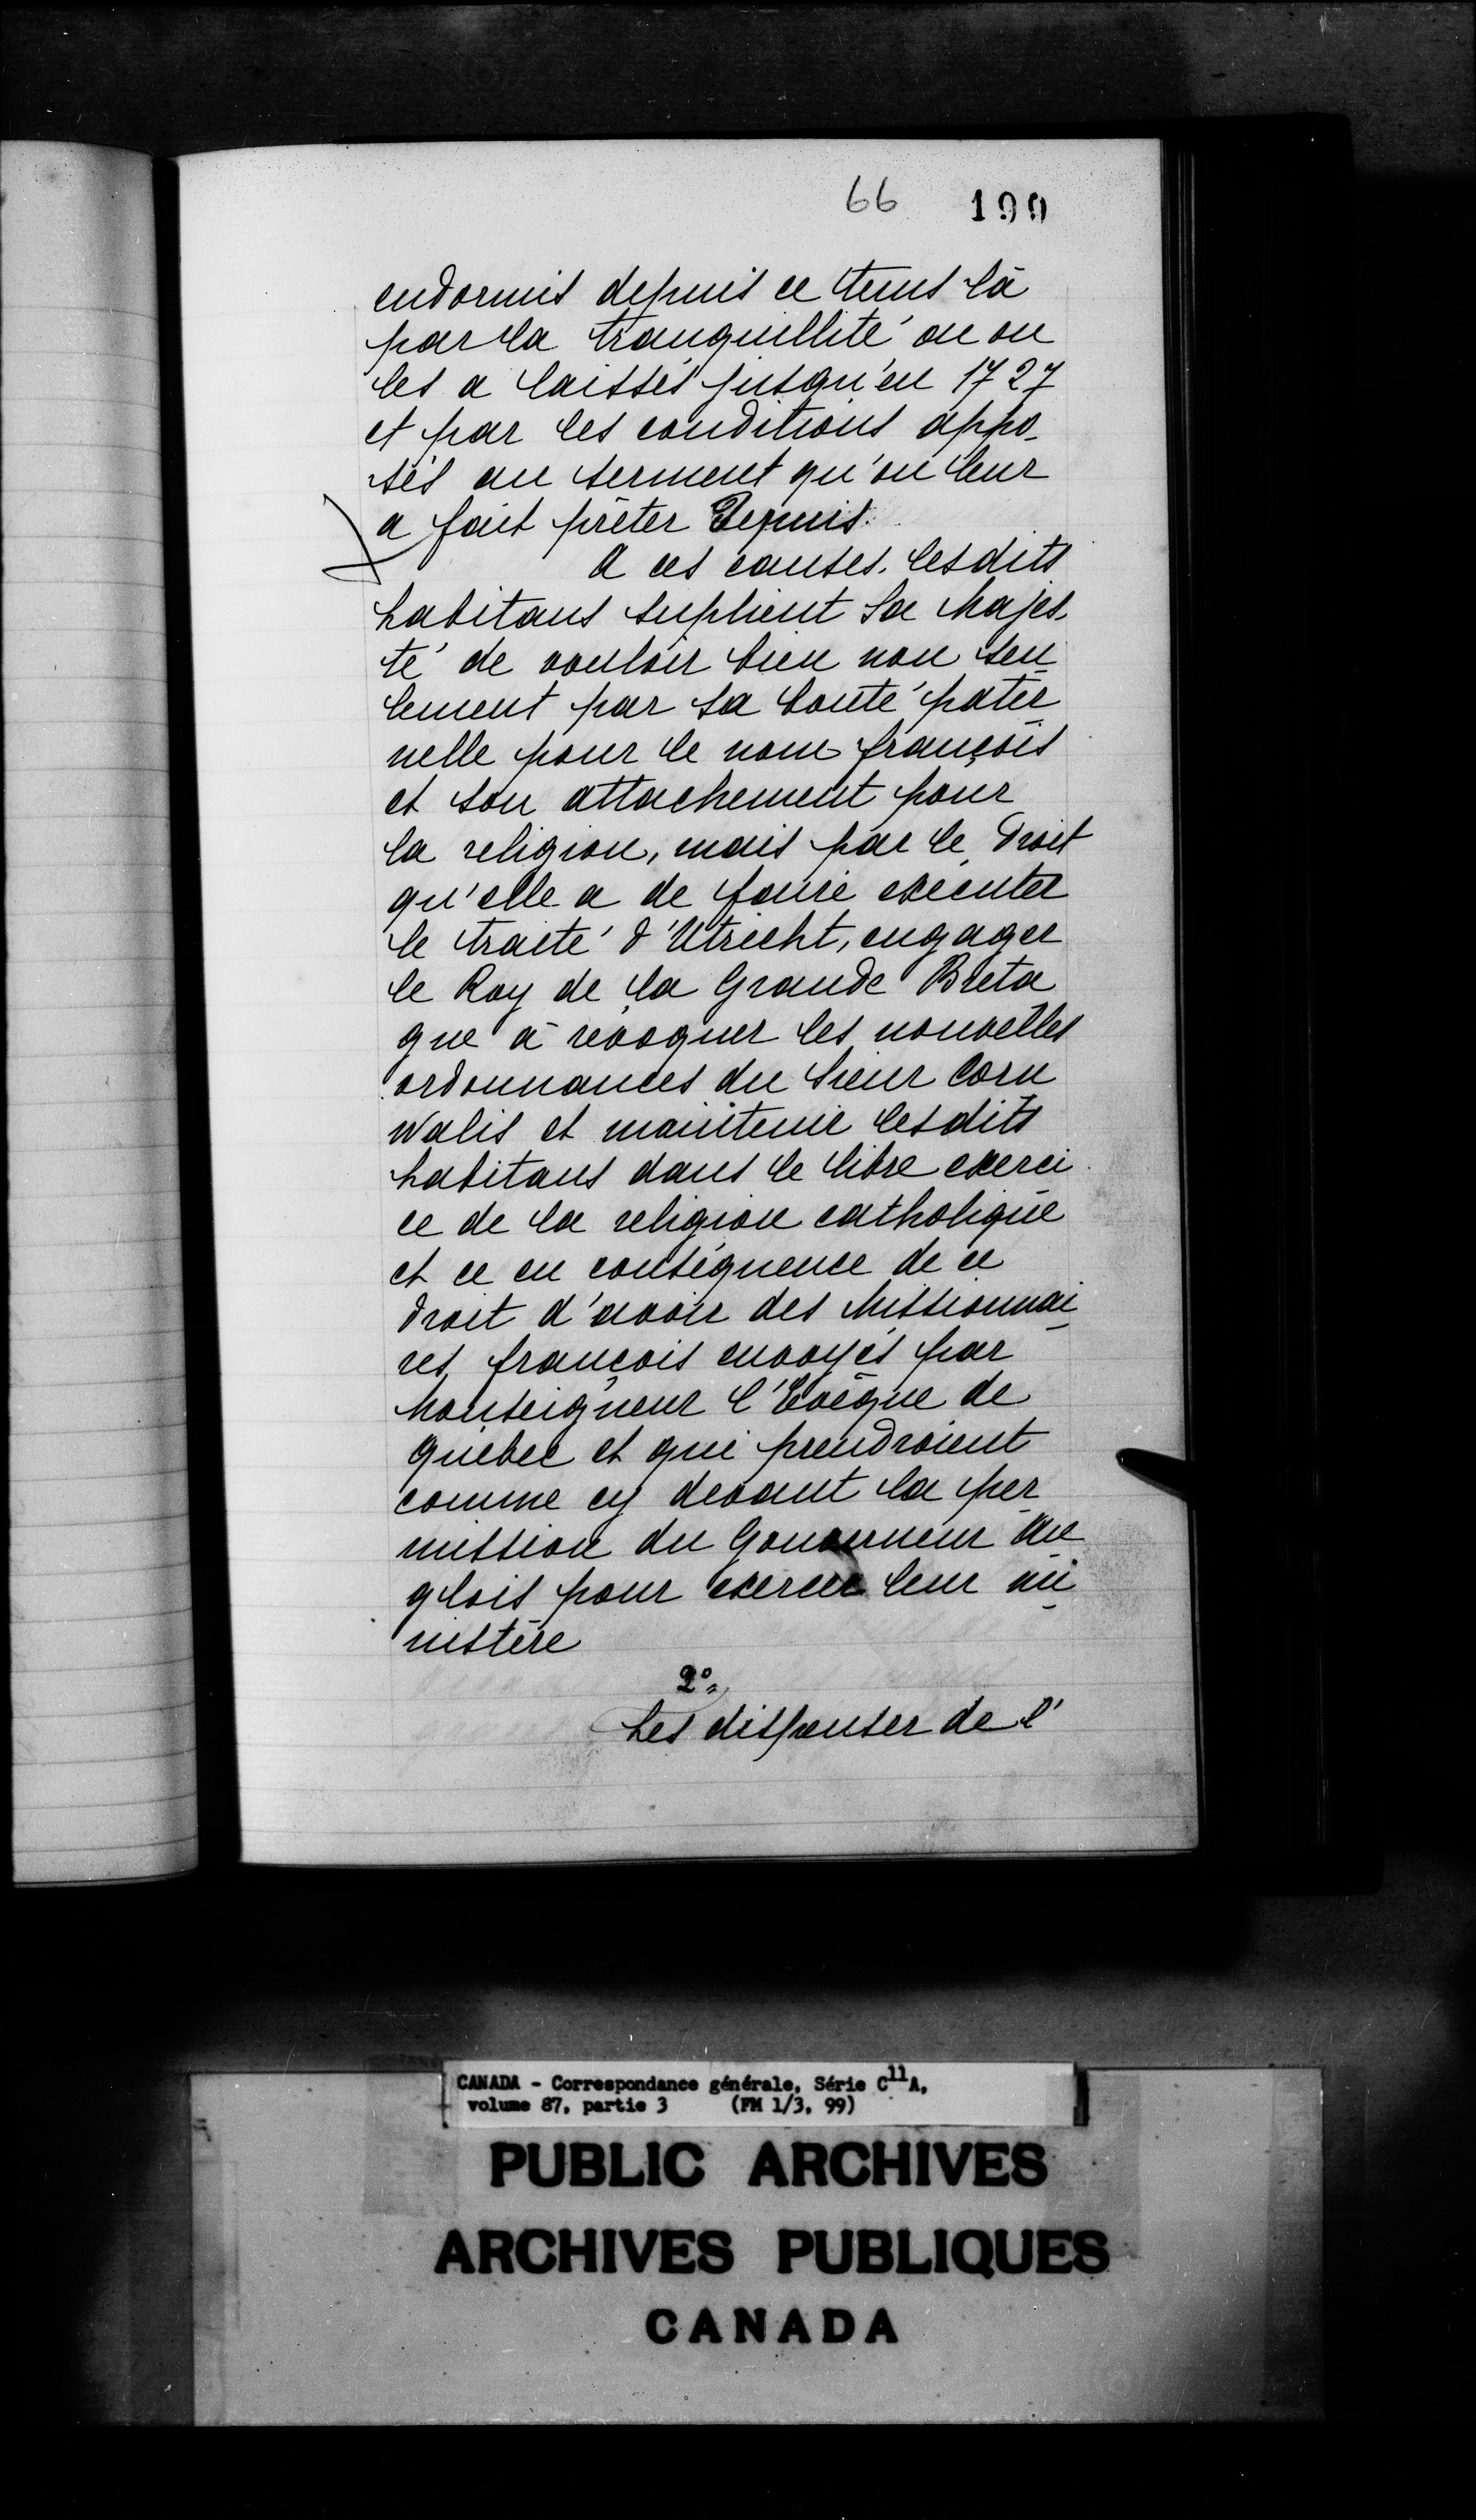 66 199
endormis depuis ce tems là
par la tranquillité ou on
les a laissés jusqu'en 1727
et par les conditions appo-
sés au serment qu'on leur
a fait prêter Depuis.
A ces causes. lesdits
habitans suplient Sa Majes-
té de vouloir bien non seu
lement par sa bonté pater
nelle pour le nom françois
et son attachement pour
la religion, mais par le Droit
qu'elle a de faire exécuter
le traité d'Utrecht, engager
le Roy de la Grande Breta
gne à révoquer les nouvelles
ordonnances du Sieur Corn
walis et maintenir lesdits
habitans dans le libre exerci
ce de la religion catholique
et ce en conséquence de ce
Droit d'avoir des Missionnai
res françois envoyés par
Monseigneur l'Evêque de
Québec et qui prendroient
comme cy devant la per
mission du Gouverneur An
glois pour exercer leur mi
nistère
2°
Les dispenser de l'
CANADA - Correspondance générale, Série C11A,
volume 87, partie 3 (FM 1/3, 99)
PUBLIC ARCHIVES
ARCHIVES PUBLIQUES
CANADA